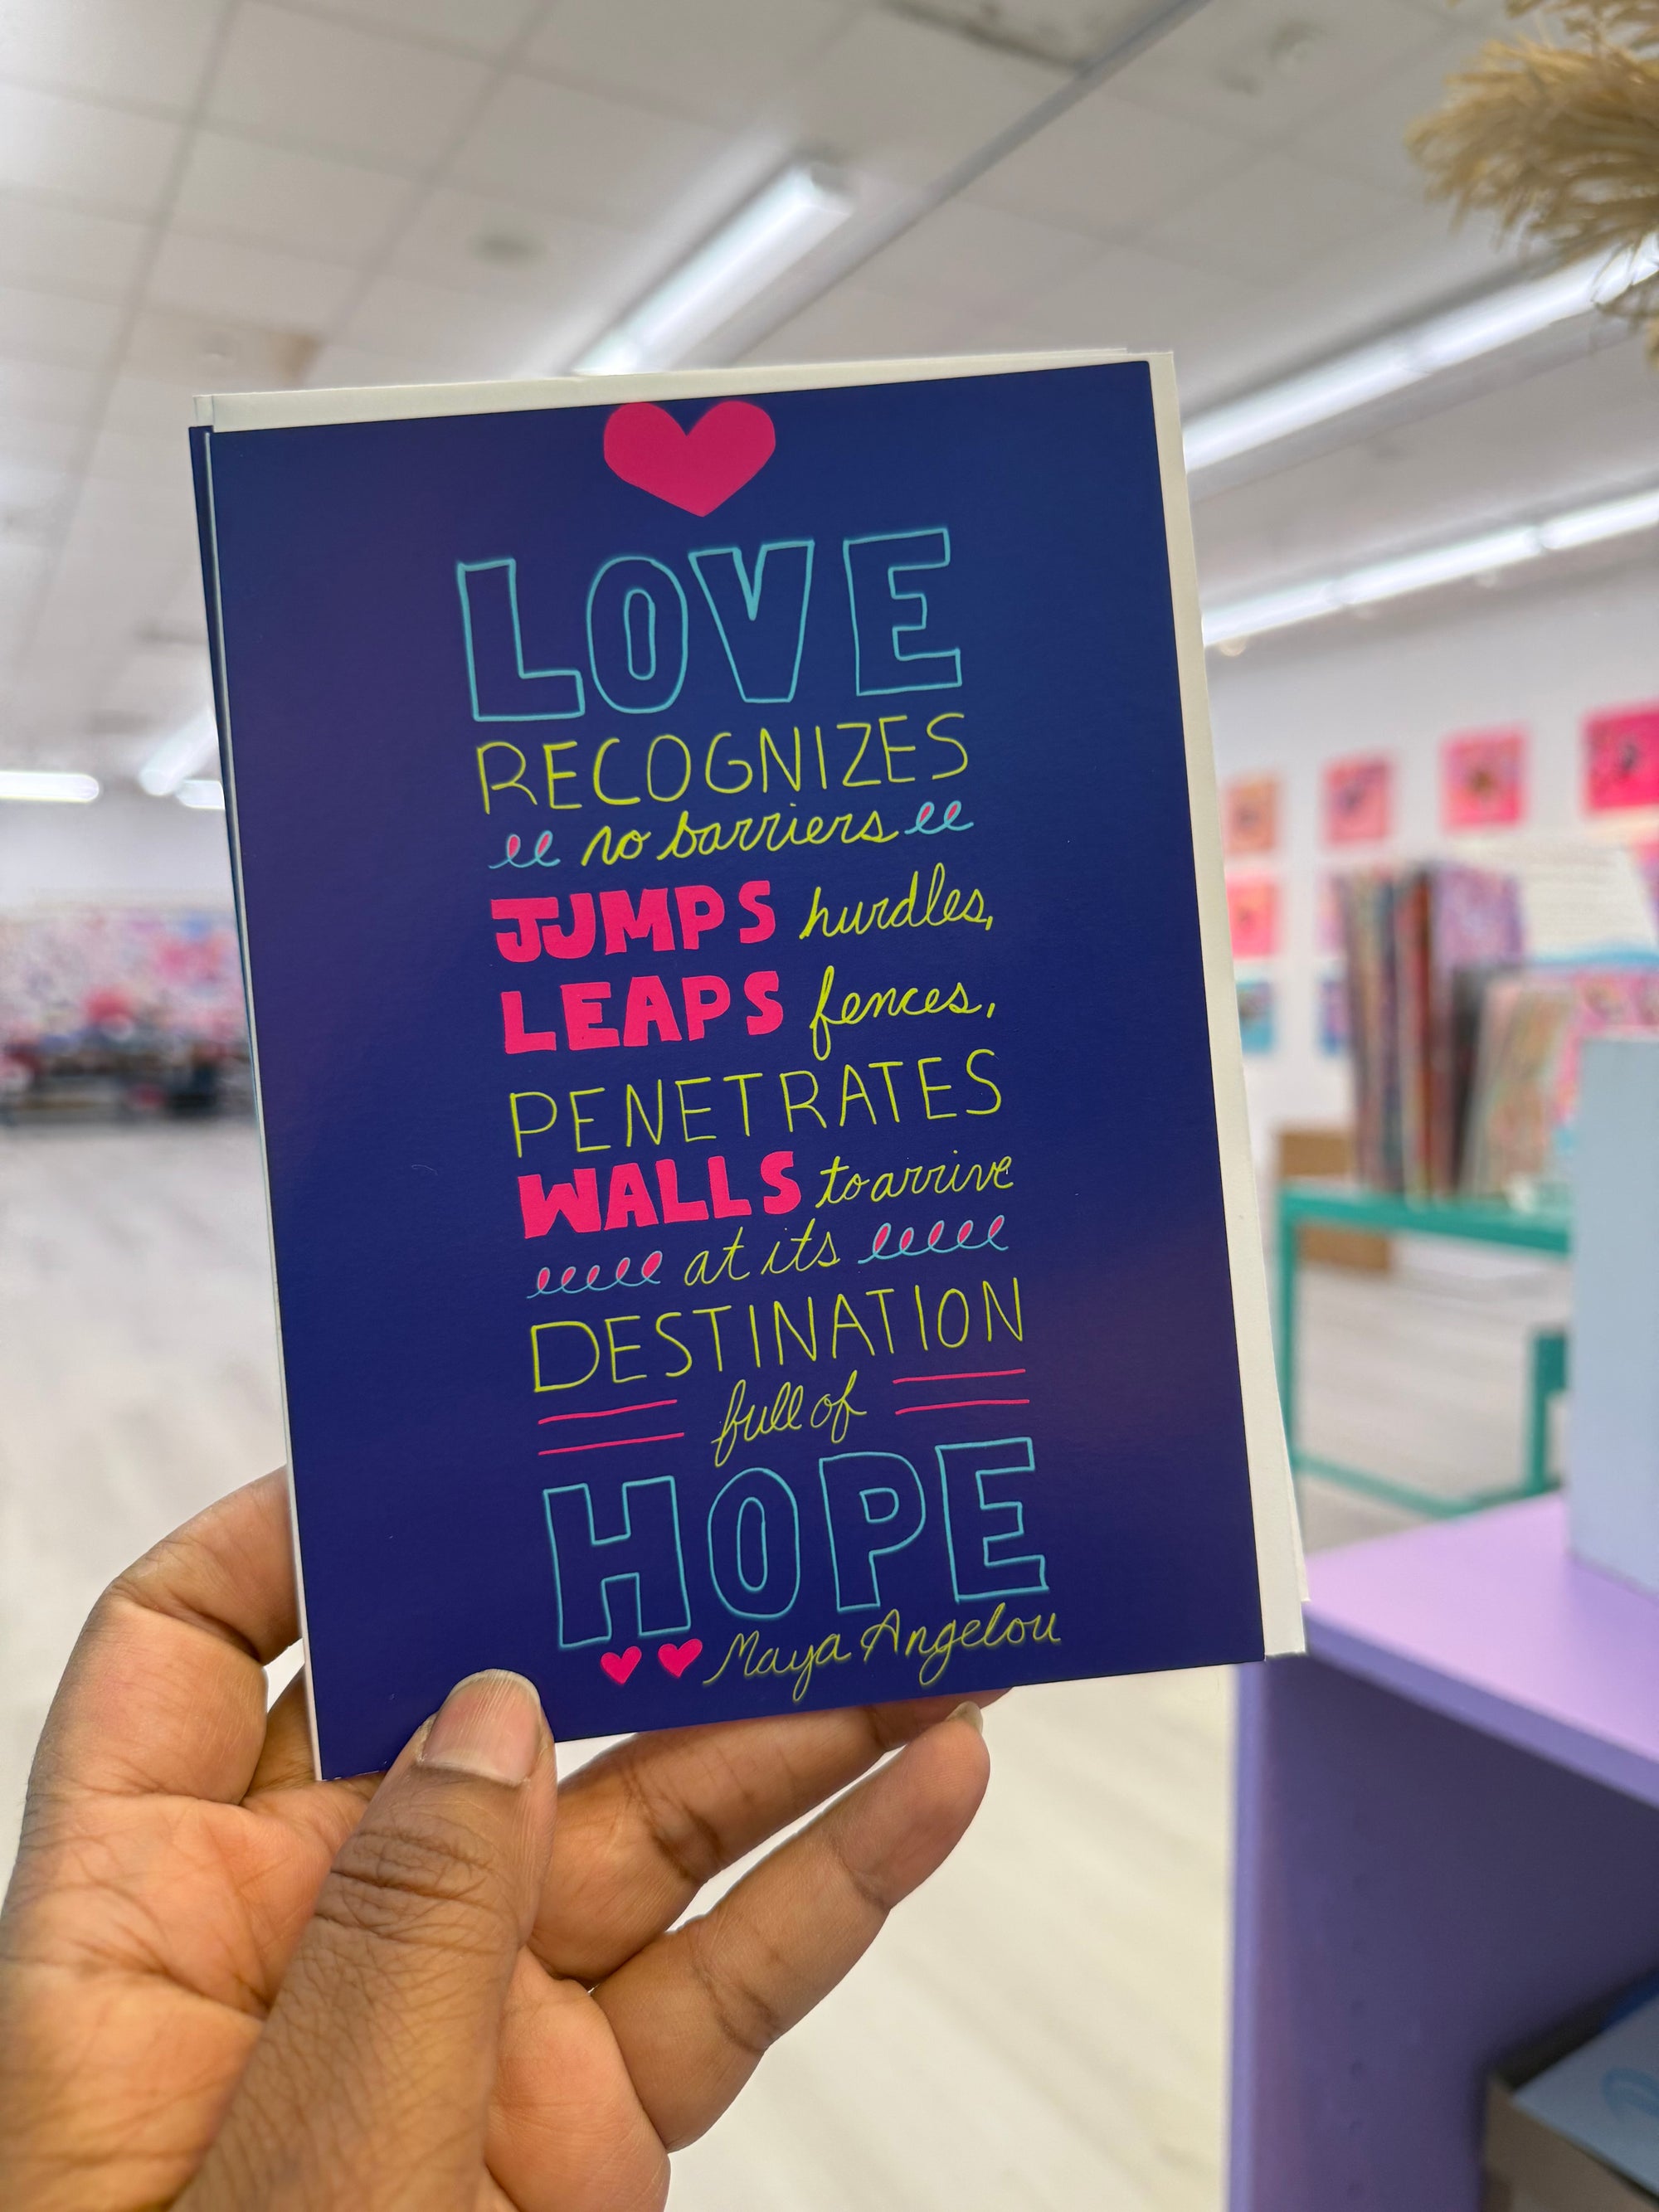 LOVE
RECOGNIZES
no barriers
JUMPS hurdles,
LEAPS fences,
PENETRATES
WALLS to arrive
at its
DESTINATION
full of
HOPE
Maya Angelou